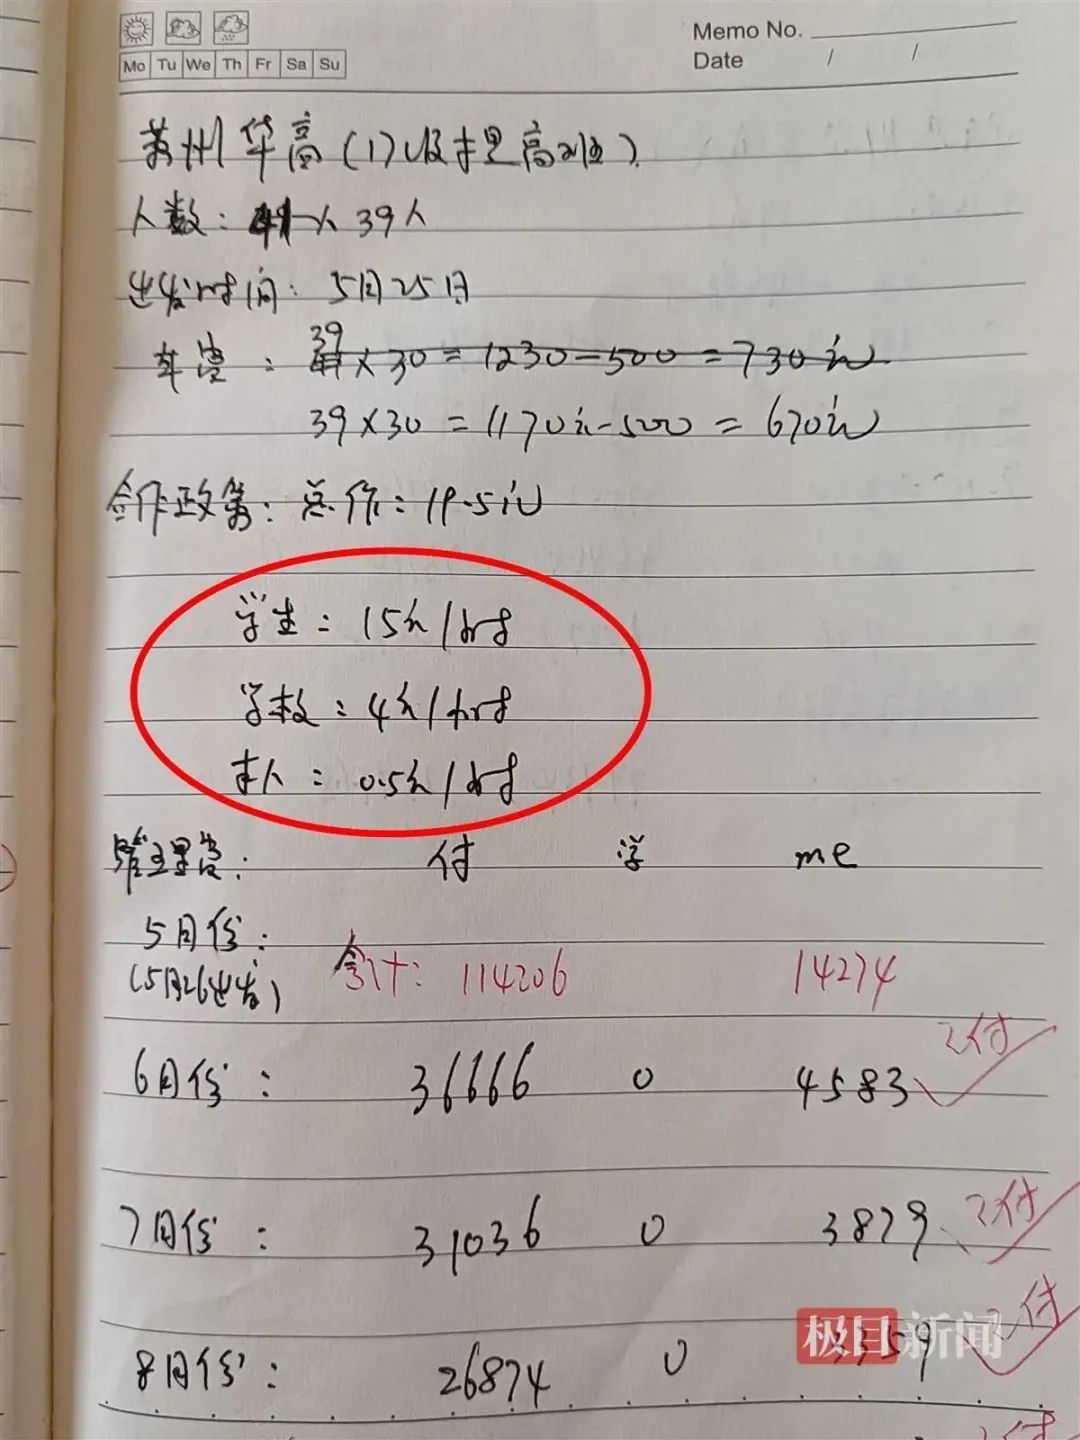 Memo No.
Mo Tu We Th Fr Sa Su
Date / /
苏州华高(17级护理高职)
人数: 41人 39人
出发时间: 5月25日
39
车费: 41×30=1230-500=730元
39×30=1170元-500=670元
合作政策: 总价: 19.5元
学生: 15元/时
学校: 4元/时
本人: 0.5元/时
管理费: 付 学 me
5月份:
(5月26出发) 合计: 114206 14274
6月份: 36666 0 4583 已付
7月份: 31036 0 3879 已付
8月份: 26874 0 3359 已付
极目新闻